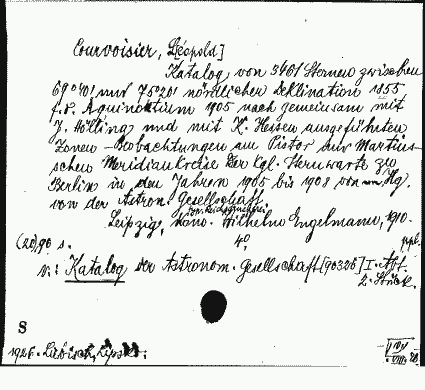 Courvoisier, L[eopold]
Katalog von 3461 Sternen zwischen
69°40' und 75°20' nördlicher Deklination 1855
f. d. Aquinoktium 1905 nach gemeinsam mit
J. Hölling und mit K. Heisen ausgeführten
Zonen-Beobachtungen am Pistor und Martins-
schen Meridiankreise der Kgl. Sternwarte zu
Berlin in den Jahren 1905 bis 1908 von Hg.
von der Astron. Gesellschaft.
Leipzig, Wilhelm Engelmann, 1910.
(20) 90 s. 4°
v.: Katalog der Astronom. Gesellschaft [90326] I. Abt.
2. Stück.
S
1926.